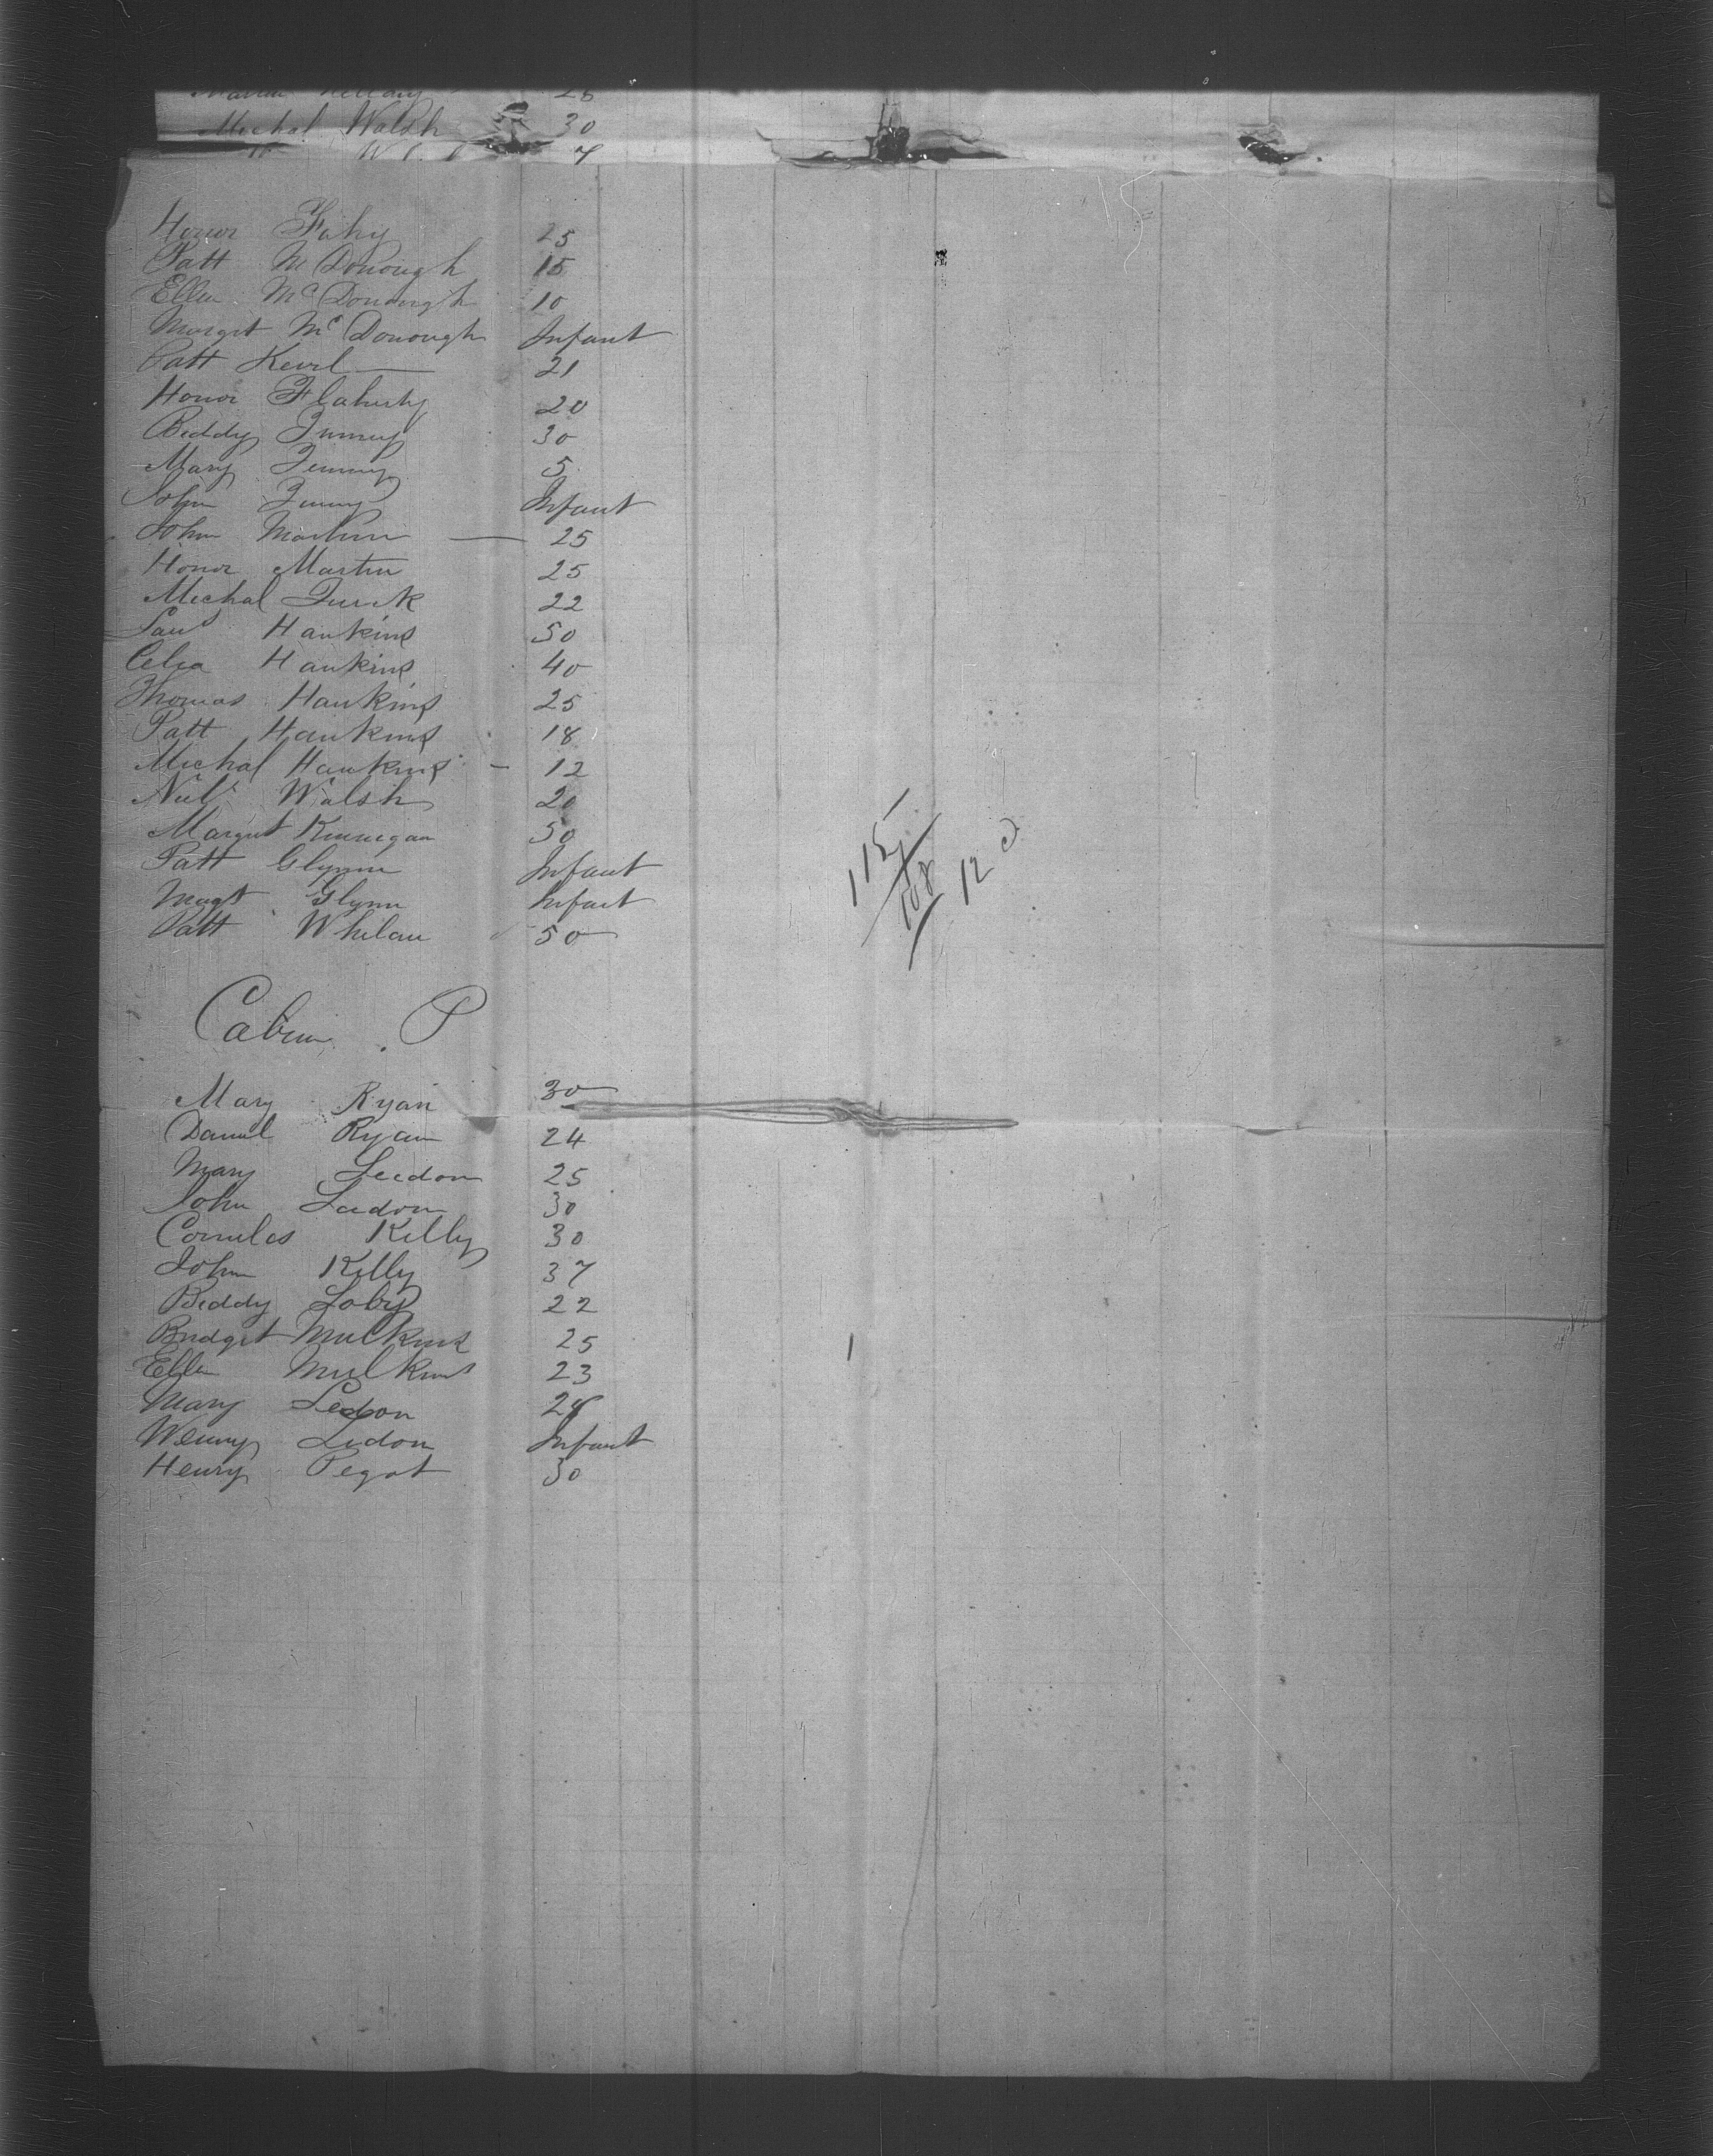 28
Michal Walsh 30
7
Honor Fahy 25
Patt McDonough 15
Ellen McDonough 10
Margrt McDonough Infant
Patt 21
Honor Flaherty 20
Biddy 30
Mary 5
John Infant
John Martin — 25
Honor Martin 25
Michal 22
Hankins 50
Celia Hankins 40
Thomas Hankins 25
Patt Hankins 18
Michal Hankins - 12
Walsh 20
Margret Kinnegan 50
Patt Glynn Infant
Magt Glynn Infant
Patt Whelan 50
115
108 12
Cabin P
Mary Ryan 30
Daniel Ryan 24
Mary Leedom 25
John Leedom 30
Cornelos Killy 30
John Killy 37
Biddy Loby 22
Bridget Mulkins 25
Ellen Mulkins 23
Mary Ledon 28
Ledon Infant
Henry Pegot 30